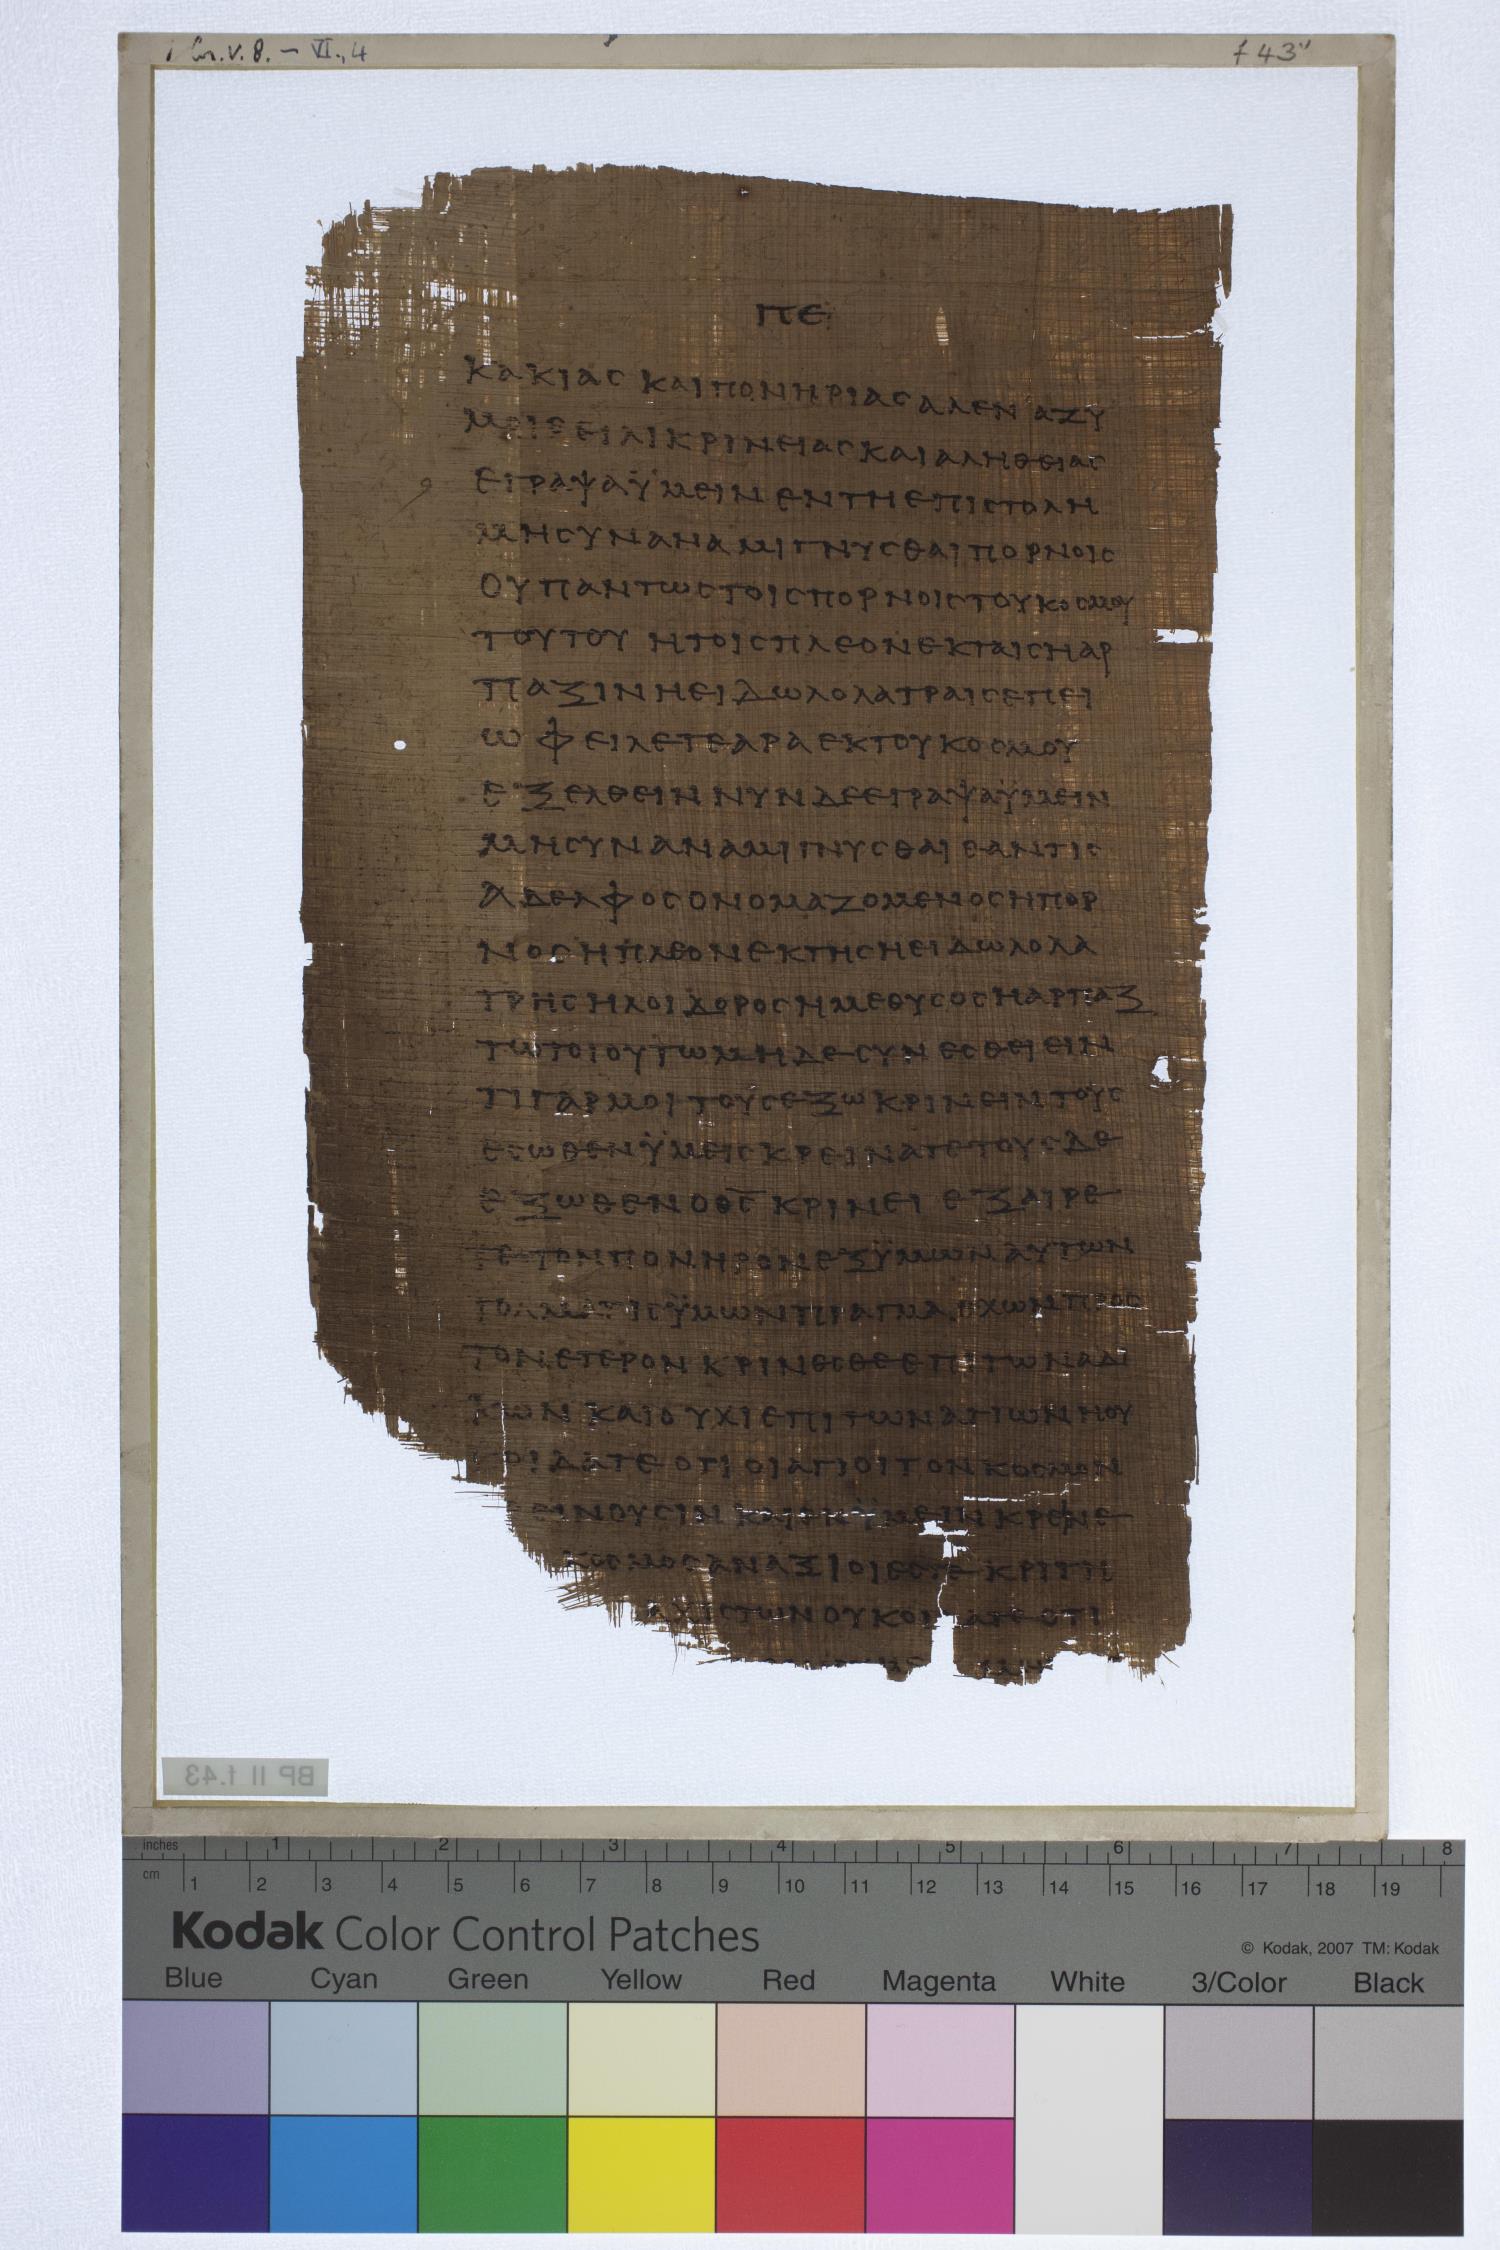 1 Cor. V. 8. – VI., 4
f 43"
ΠΕ
ΚΑΚΙΑΣ ΚΑΙ ΠΟΝΗΡΙΑΣ ΑΛΛ ΕΝ ΑΖΥ
ΜΟΙΣ ΕΙΛΙΚΡΙΝΕΙΑΣ ΚΑΙ ΑΛΗΘΕΙΑΣ
ΕΓΡΑΨΑ ΫΜΕΙΝ ΕΝ ΤΗ ΕΠΙΣΤΟΛΗ
ΜΗ ΣΥΝΑΝΑΜΙΓΝΥΣΘΑΙ ΠΟΡΝΟΙΣ
ΟΥ ΠΑΝΤΩΣ ΤΟΙΣ ΠΟΡΝΟΙΣ ΤΟΥ ΚΟΣΜΟΥ
ΤΟΥΤΟΥ Η ΤΟΙΣ ΠΛΕΟΝΕΚΤΑΙΣ Η ΑΡ
ΠΑΞΙΝ Η ΕΙΔΩΛΟΛΑΤΡΑΙΣ ΕΠΕΙ
ΩΦΕΙΛΕΤΕ ΑΡΑ ΕΚ ΤΟΥ ΚΟΣΜΟΥ
ΕΞΕΛΘΕΙΝ ΝΥΝ ΔΕ ΕΓΡΑΨΑ ΫΜΕΙΝ
ΜΗ ΣΥΝΑΝΑΜΙΓΝΥΣΘΑΙ ΕΑΝ ΤΙΣ
ΑΔΕΛΦΟΣ ΟΝΟΜΑΖΟΜΕΝΟΣ Η ΠΟΡ
ΝΟΣ Η ΠΛΕΟΝΕΚΤΗΣ Η ΕΙΔΩΛΟΛΑ
ΤΡΗΣ Η ΛΟΙΔΟΡΟΣ Η ΜΕΘΥΣΟΣ Η ΑΡΠΑΞ
ΤΩ ΤΟΙΟΥΤΩ ΜΗΔΕ ΣΥΝΕΣΘΕΙΕΙΝ
ΤΙ ΓΑΡ ΜΟΙ ΤΟΥΣ ΕΞΩ ΚΡΙΝΕΙΝ ΤΟΥΣ
ΕΣΩΘΕΝ ΫΜΕΙΣ ΚΡΕΙΝΑΤΕ ΤΟΥΣ ΔΕ
ΕΞΩΘΕΝ Ο ΘΣ ΚΡΙΝΕΙ ΕΞΑΙΡΕ
ΤΕ ΤΟΝ ΠΟΝΗΡΟΝ ΕΞ ΫΜΩΝ ΑΥΤΩΝ
ΤΟΛΜΑ ΤΙΣ ΫΜΩΝ ΠΡΑΓΜΑ ΕΧΩΝ ΠΡΟΣ
ΤΟΝ ΕΤΕΡΟΝ ΚΡΙΝΕΣΘΕ ΕΠΙ ΤΩΝ ΑΔΙ
ΚΩΝ ΚΑΙ ΟΥΧΙ ΕΠΙ ΤΩΝ ΑΓΙΩΝ Η ΟΥ
Κ ΟΙΔΑΤΕ ΟΤΙ ΟΙ ΑΓΙΟΙ ΤΟΝ ΚΟΣΜΟΝ
ΕΙΝΟΥΣΙΝ ΚΑΙ ΕΝ ΫΜΕΙΝ ΚΡΕΙΝΕ
ΚΟΣΜΟΣ ΑΝΑΞΙΟΙ ΕΣΤΕ ΚΡΙΤΗ
ΑΧΙΣΤΩΝ ΟΥΚ ΟΙ ΑΤΕ ΟΤΙ
BP II f.43
inches 1 2 3 4 5 6 7 8
cm 1 2 3 4 5 6 7 8 9 10 11 12 13 14 15 16 17 18 19
Kodak Color Control Patches
© Kodak, 2007 TM: Kodak
Blue Cyan Green Yellow Red Magenta White 3/Color Black